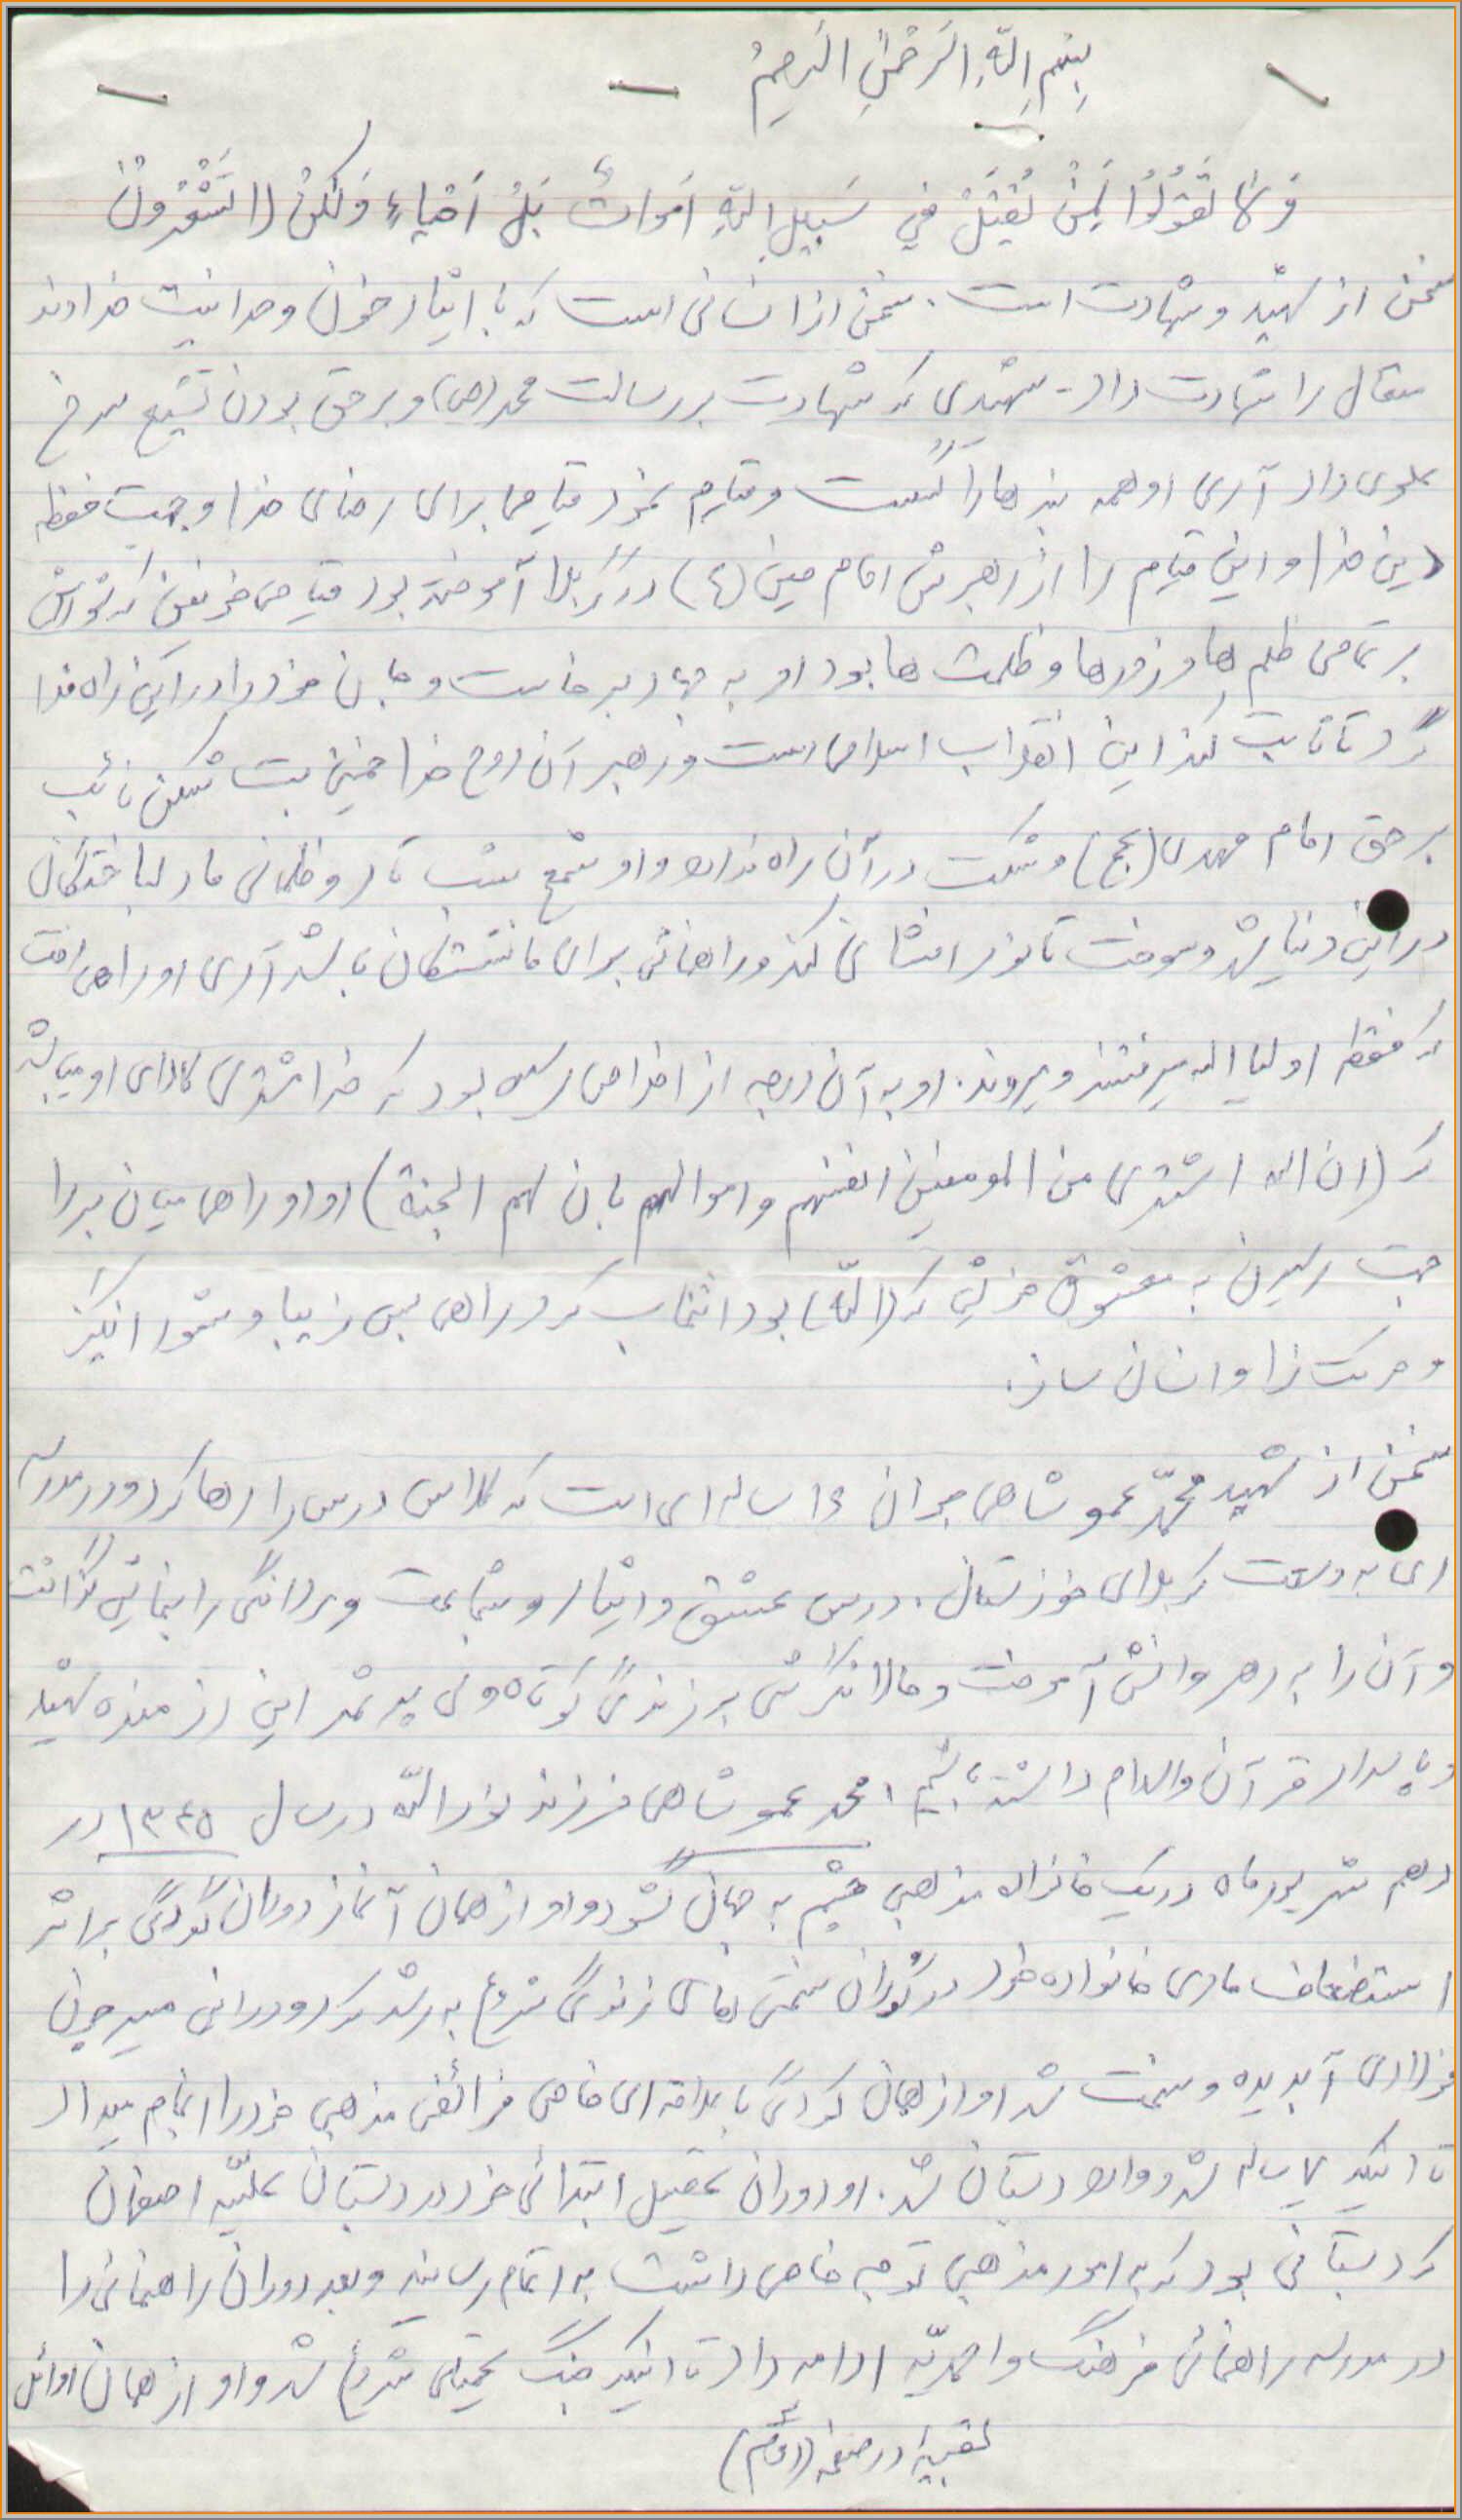 بِسْمِ اللّهِ الرَّحْمٰنِ الرَّحِیْمْ
وَ لا تَقُولُوا لِمَنْ یُقْتَلُ فی سَبیلِ اللّهِ اَمواتٌ بَلْ اَحْیاءٌ وَلکِنْ لا تَشْعُرُونْ
سخن از شهید و شهادت است . سخن از انسانی است که با ایثار خونش وحدانیت خداوند
متعال را شهادت داد - شهیدی که شهادت بر رسالت محمد (ص) و بر حق بودن تشیع سرخ
علوی داد آری او همه بندها را گسست و قیام نمود قیامی برای رضای خدا و جهت حفظ
دین خدا و این قیام را از رهبرش امام حسین (ع) در کربلا آموخته بود قیامی خونین که
بر تمامی ظلم ها و زورها و ظلمت ها بود او به جهاد برخاست و جان خود را در این راه فدا
کرد تا ثابت کند این انقلاب اسلامی است و رهبر آن روح خدا خمینی بت شکن نائب
بر حق امام مهدی (عج) و شک در آن راه ندارد و او شمع شب تار و ظلمانی ما دلباختگان
در این دنیا شد و سوخت تا نور افشانی کند و راهنمائی برای ما تشنگان باشد آری او راهی رفت
که فقط اولیا الله میرفتند و میروند . او به آن درجه از اخلاص رسیده بود که خدا مشتری کالای او میباشد
که (ان الله اشتری من المومنین انفسهم و اموالهم بان لهم الجنة) او راهی میان بر را
جهت رسیدن به معشوق خویش که (اللّه) بود انتخاب کرد راهی بس زیبا و شورانگیز
و حرکت زا و انسان ساز .
سخن از شهید محمّد عموشاهی جوان ۱۵ ساله ای است که کلاس درس را رها کرد و در مدرسه
ای به وسعت کربلای خوزستان . درس عشق و ایثار و شجاعت و مردانگی را بنمایش گذاشت
و آن را به رهروانش آموخت و حالا نگرشی بر زندگی کوتاه ولی پر ثمر این رزمنده شهید
و پاسدار قرآن و اسلام داشته باشیم . محمد عموشاهی فرزند نوراللّه در سال ۱۳۴۵ در
دهم شهریور ماه در یک خانواده مذهبی چشم به جهان گشود و او از همان آغاز دوران کودکی بر اثر
استضعاف مادی خانواده خود در گوران سختی های زندگی شروع به رشد کرد و درانی همچون
فولادی آبدیده و سخت شد او از همان کودکی با علاقه ای خاص فرائض مذهبی خود را انجام میداد
تا اینکه ۷ ساله شد و وارد دبستان شد . او دوران تحصیل ابتدائی خود در دبستان علیّه اصفهان
که دبستانی بود که به امور مذهبی توجه خاصی داشت به اتمام رسانید و بعد دوران راهنمائی را
در مدرسه راهنمائی فرهنگ و احمدیّه ادامه داد تا اینکه جنگ تحمیلی شروع شد و او از همان اوائل
بقیه در صفحه (دوّم)